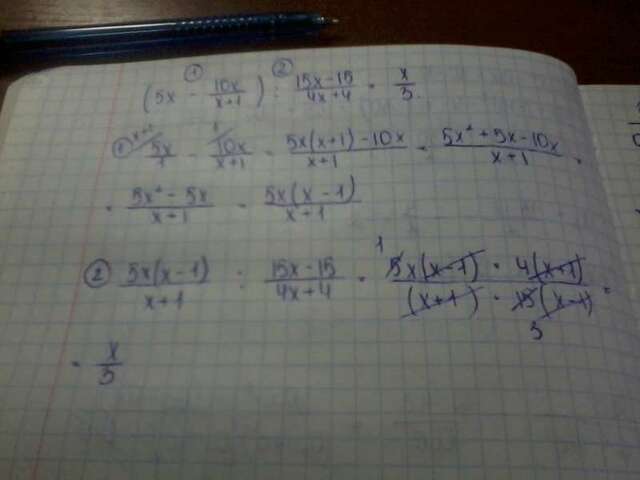 ① ②
(5x - 10x/(x+1)) : (15x-15)/(4x+4) = x/3.
① 5x/1 - 10x/(x+1) = (5x(x+1)-10x)/(x+1) = (5x²+5x-10x)/(x+1) =
= (5x²-5x)/(x+1) = 5x(x-1)/(x+1)
② 5x(x-1)/(x+1) : (15x-15)/(4x+4) = (5x(x-1) · 4(x+1))/((x+1) · 15(x-1)) =
= x/3